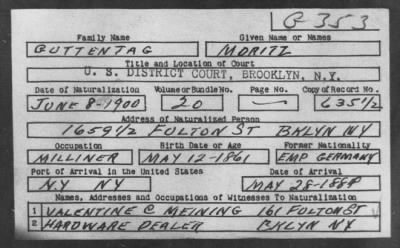 G 353
Family Name Given Name or Names
GUTTENTAG MORITZ
Title and Location of Court
U. S. DISTRICT COURT, BROOKLYN, N.Y.
Date of Naturalization Volume or Bundle No. Page No. Copy of Record No.
JUNE 8-1900 20 — 635 1/2
Address of Naturalized Person
1659 1/2 FULTON ST BKLYN NY
Occupation Birth Date or Age Former Nationality
MILLINER MAY 12-1861 EMP GERMANY
Port of Arrival in the United States Date of Arrival
N.Y NY MAY 28-1884
Names, Addresses and Occupations of Witnesses To Naturalization
1 VALENTINE C MEINING 161 FULTON ST
2 HARDWARE DEALER BKLYN NY